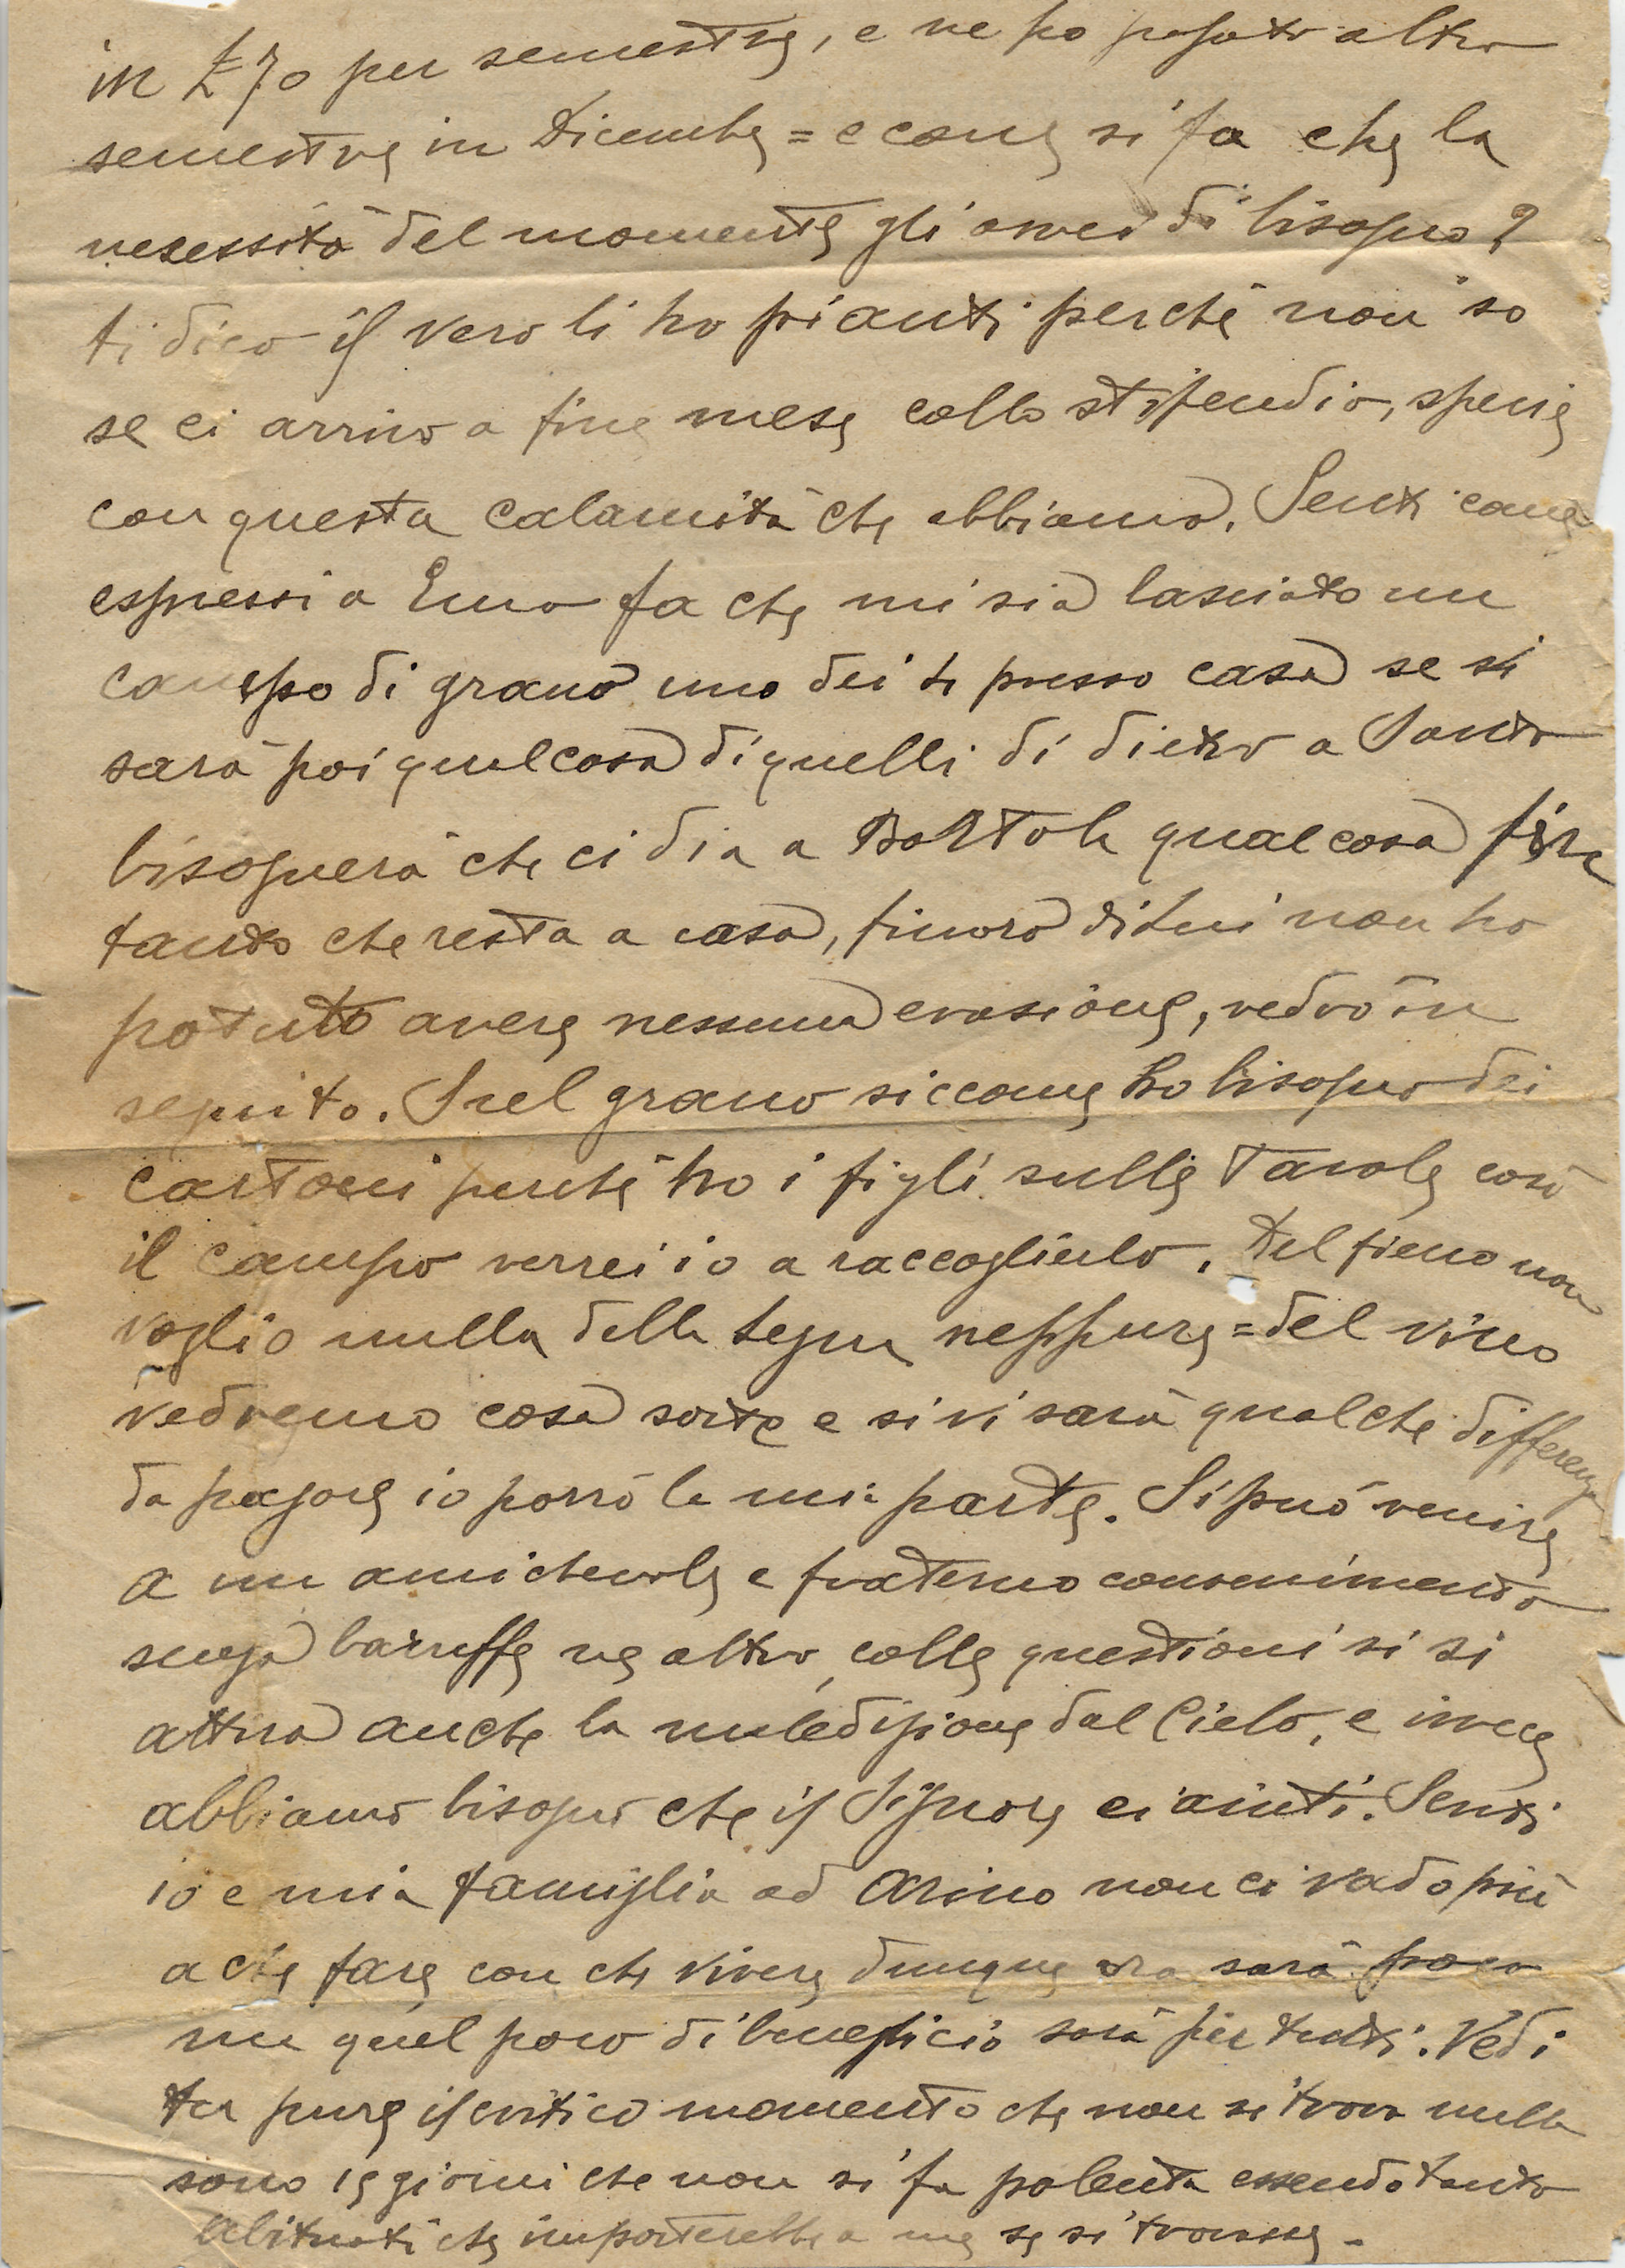 in £70 per semestre, e ne ho pagato altro
semestre in Dicembre = e come si fa che la
necessità del momento gli avrei di bisogno?
ti dico il vero li ho pianti perchè non so
se ci arrivo a fine mese collo stipendio, specie
con questa calamità che abbiamo. Senti come
espressi a Emo fa che mi sia lasciato un
campo di grano uno dei li presso casa se vi
sarà poi qualcosa di quelli di dietro a Santo
bisognerà che ci dia a Bortolo qualcosa fin
tanto che resta a casa, finora di lui non ho
potuto avere nessuna evasione, vedrò in
seguito. Sul grano siccome ho bisogno dei
cartoni perchè ho i figli sulle tavole così
il campo verrei io a raccoglierlo. Del fieno non
voglio nulla della legna neppure = del vino
vedremo cosa sorte e si vi sarà qualche differenza
da pagare io porrò la mia parte. Si può venire
a un amichevole e fraterno convenimento
senza baruffe ne altro, colle questioni si si
attira anche la maledizione dal Cielo, e invece
abbiamo bisogno che il Signore ci aiuti. Senti
io e mia famiglia ad Arino non ci vado più
a che fare con che vivere dunque ora sarà poco
ma quel poco di beneficio sarà per tutti. Vedi
tu pure il critico momento che non si trova nulla
sono 15 giorni che non si fa polenta essendo tanto
abituati che importerebbe a me se si trovasse.